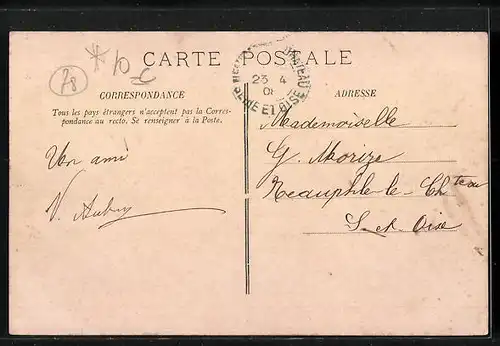 78
10
C
CARTE POSTALE
CHATEAU
23 4
08
SEINE ET OISE
CORRESPONDANCE
Tous les pays étrangers n'acceptent pas la Corres-
pondance au recto. Se renseigner à la Poste.
Un ami
V. Aubry
ADRESSE
Mademoiselle
G. Morize
Neauphle-le-Chteau
S-et-Oise